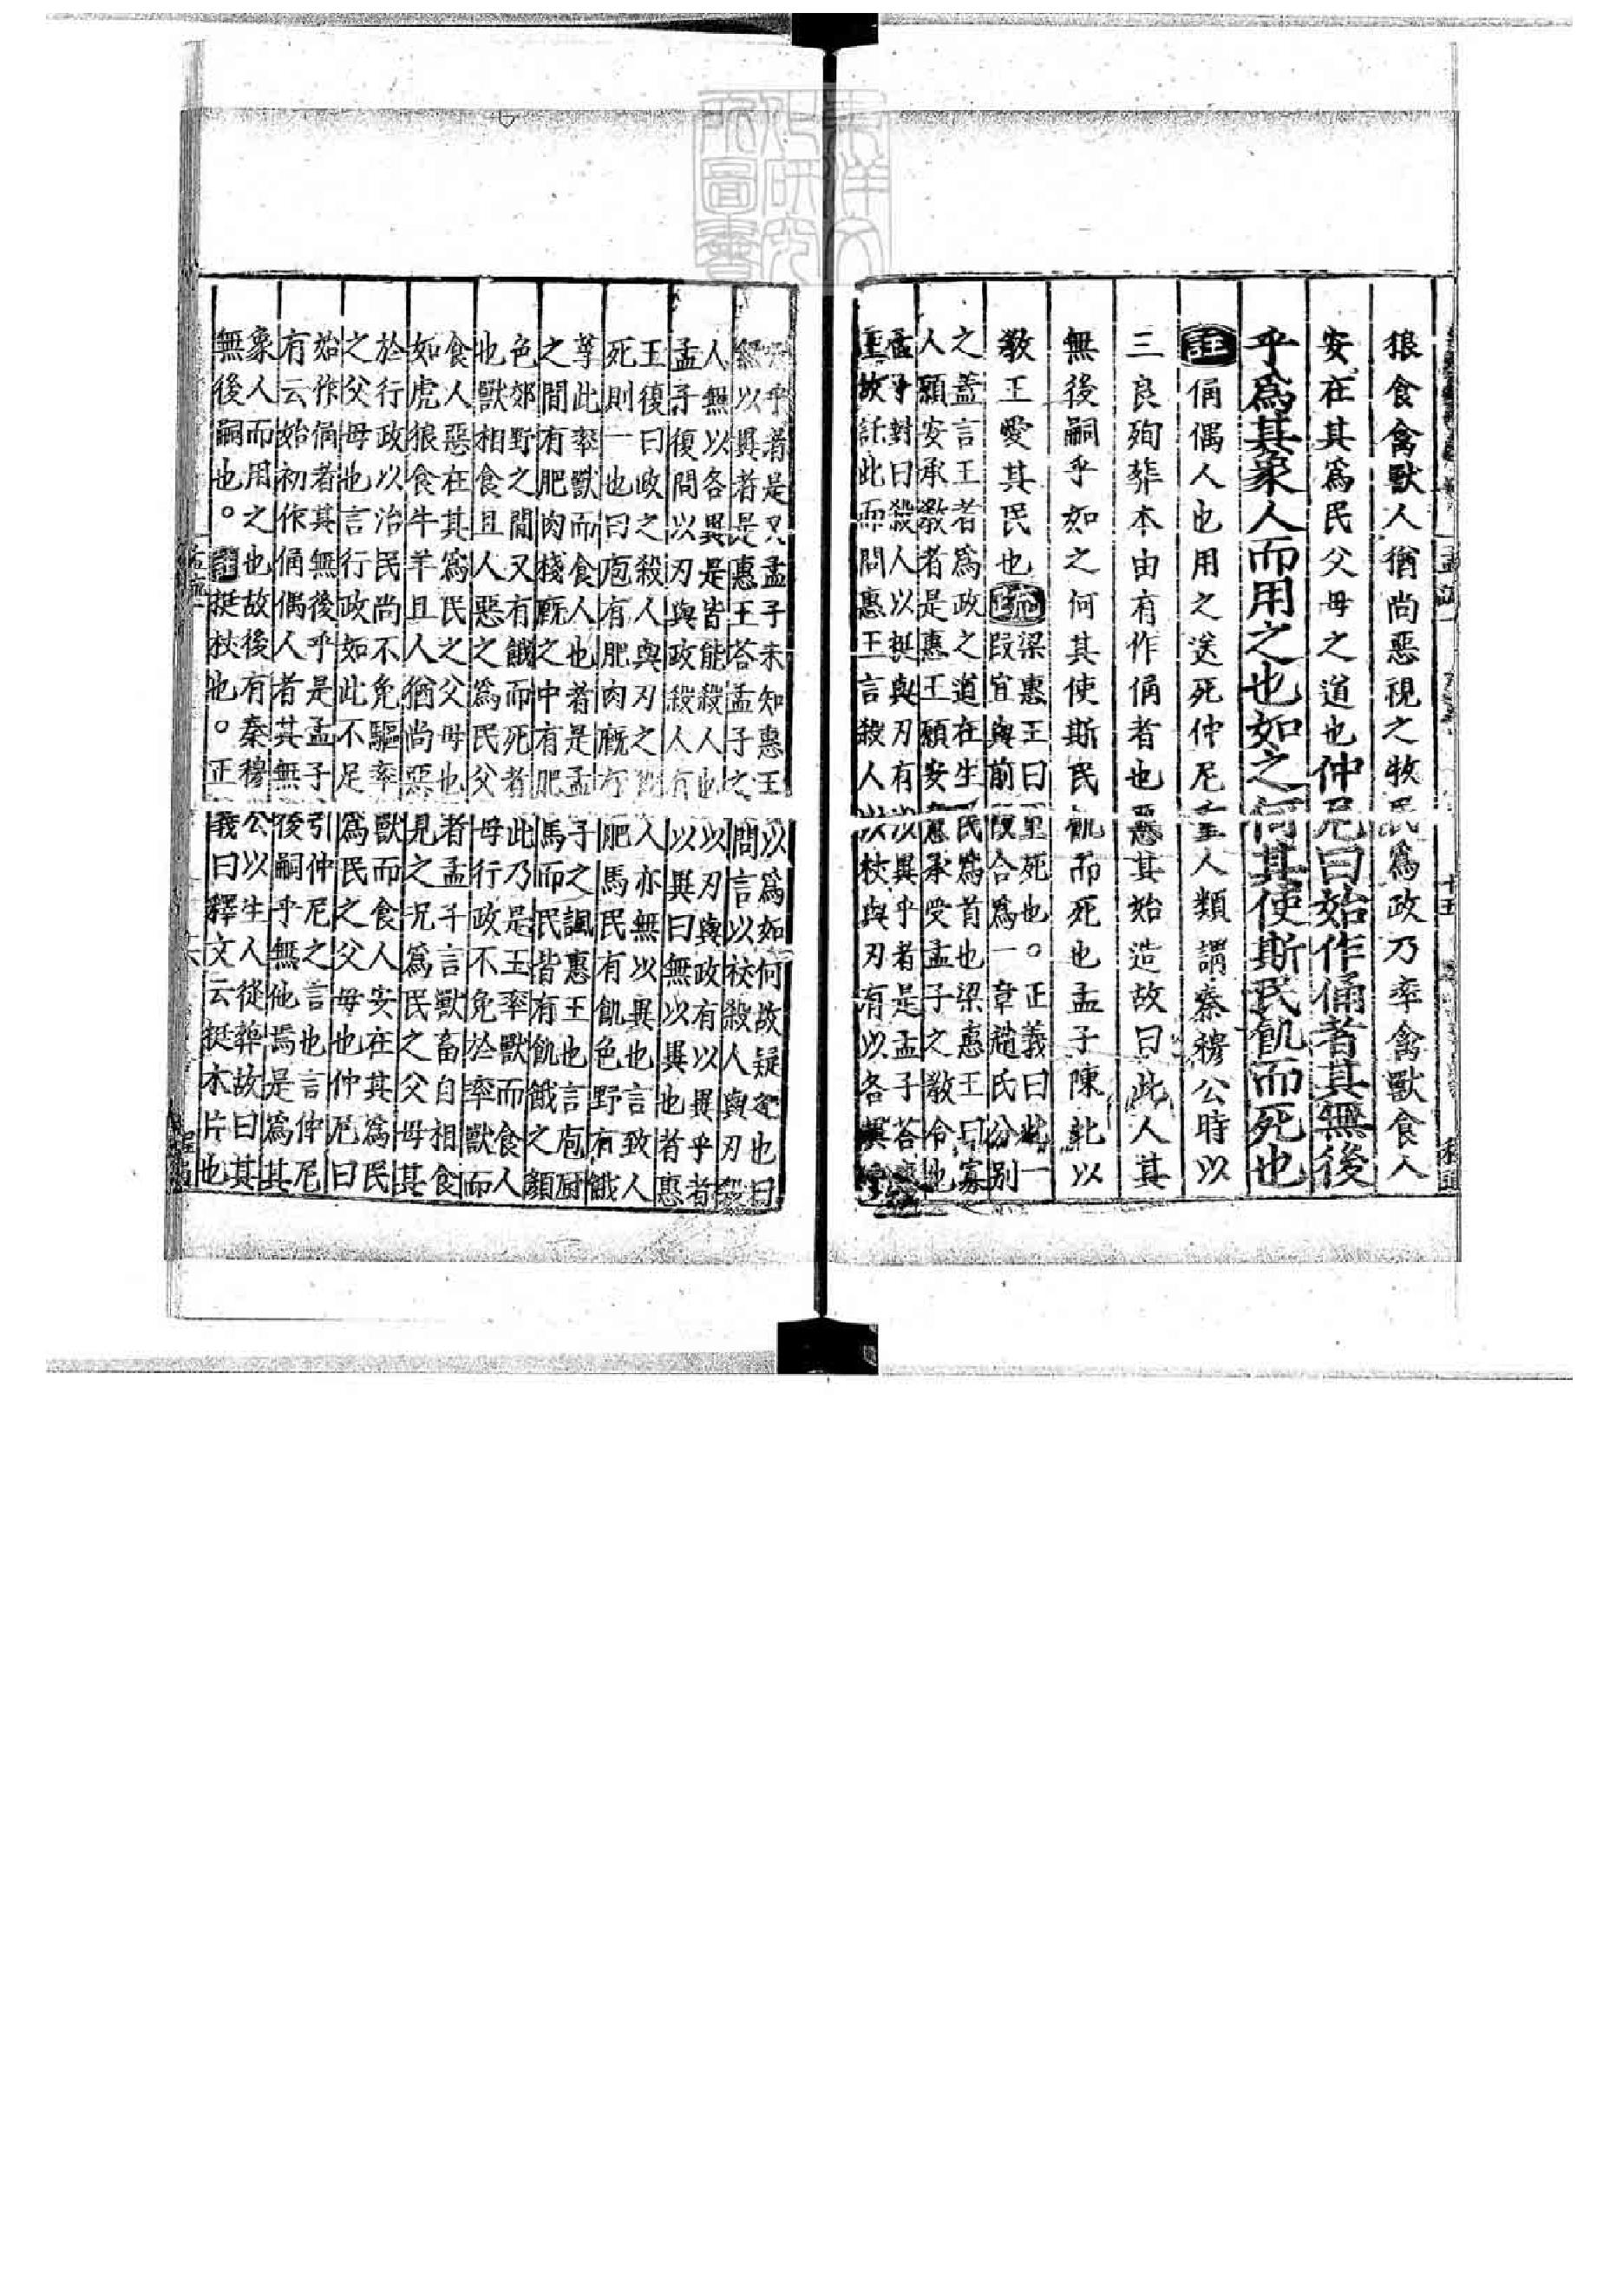 狼食禽獸人猶尚惡視之牧民爲政乃率禽獸食人
安在其爲民父母之道也仲尼曰始作俑者其無後
乎爲其象人而用之也如之何其使斯民飢而死也
註俑偶人也用之送死仲尼重人類謂秦穆公時以
三良殉葬本由有作俑者也惡其始造故曰此人其
無後嗣乎如之何其使斯民飢而死也孟子陳此以
教王愛其民也疏梁惠王曰至死也。正義曰此一
段宜與前段合爲一章趙氏分別
之蓋言王者爲政之道在生民爲首也梁惠王曰寡
人願安承教者是惠王願安意承受孟子之教令也
孟子對曰殺人以挺與刃有以異乎者是孟子荅惠
王故託此而問惠王言殺人以杖與刃有以各異
乎者是又孟子未知惠王以爲如何故疑之也曰
無以異者是惠王荅孟子之問言以杖殺人與刃殺
人無以各異是皆能殺人也以刃與政有以異乎者
孟子復問以刃與政殺人有以異曰無以異也者惠
王復曰政之殺人與刃之殺人亦無以異也言致人
死則一也曰庖有肥肉廐有肥馬民有飢色野有餓
莩此率獸而食人也者是孟子之諷惠王也言庖廚
之間有肥肉棧廐之中有肥馬而民皆有飢餓之顏
色郊野之間又有餓而死者此乃是王率獸而食人
也獸相食且人惡之爲民父母行政不免於率獸而
食人惡在其爲民之父母也者孟子言獸畜自相食
如虎狼食牛羊且人猶尚惡見之况爲民之父母其
於行政以治民尚不免驅率獸而食人安在其爲民
之父母也言行政如此不足爲民之父母也仲尼曰
始作俑者其無後乎是孟子引仲尼之言也言仲尼
有云始初作俑偶人者其無後嗣乎無他焉是爲其
象人而用之也故後有秦穆公以生人從葬故曰其
無後嗣也。註挺杖也。正義曰釋文云挺木片也